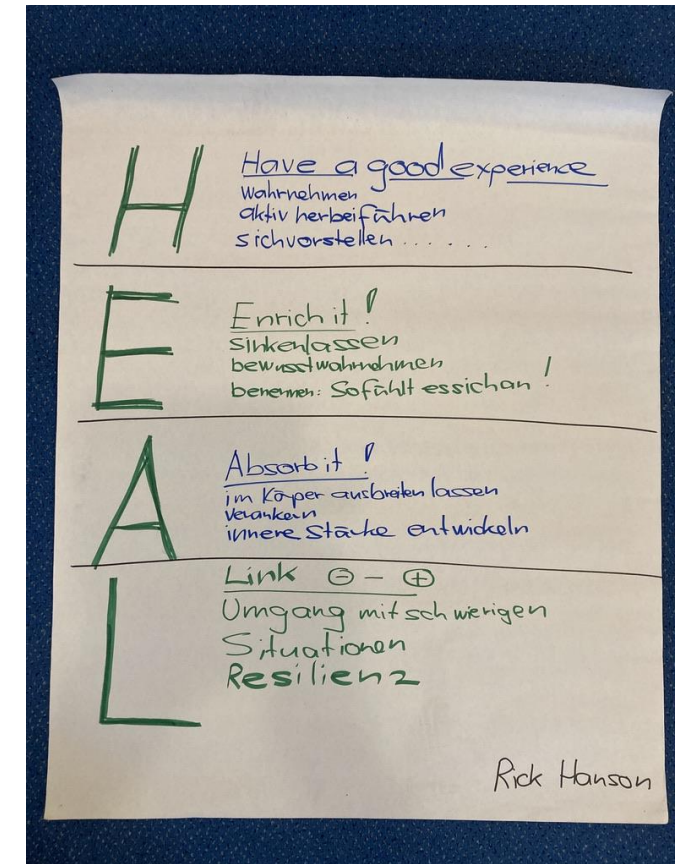 H
Have a good experience
wahrnehmen
aktiv herbeiführen
sichvorstellen . . . . . .
E
Enrich it !
sinkenlassen
bewusstwahrnehmen
benennen: Sofühlt essichan !
A
Absorb it !
im Körper ausbreiten lassen
verankern
innere Stärke entwickeln
L
Link ⊖ – ⊕
Umgang mit schwierigen
Situationen
Resilienz
Rick Hanson